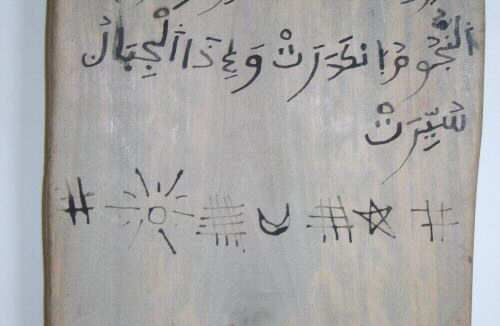 اَلنُّجُومُ اَنكَدَرَتْ وَإِذَا اَلْجِبَالُ
سُيِّرَتْ